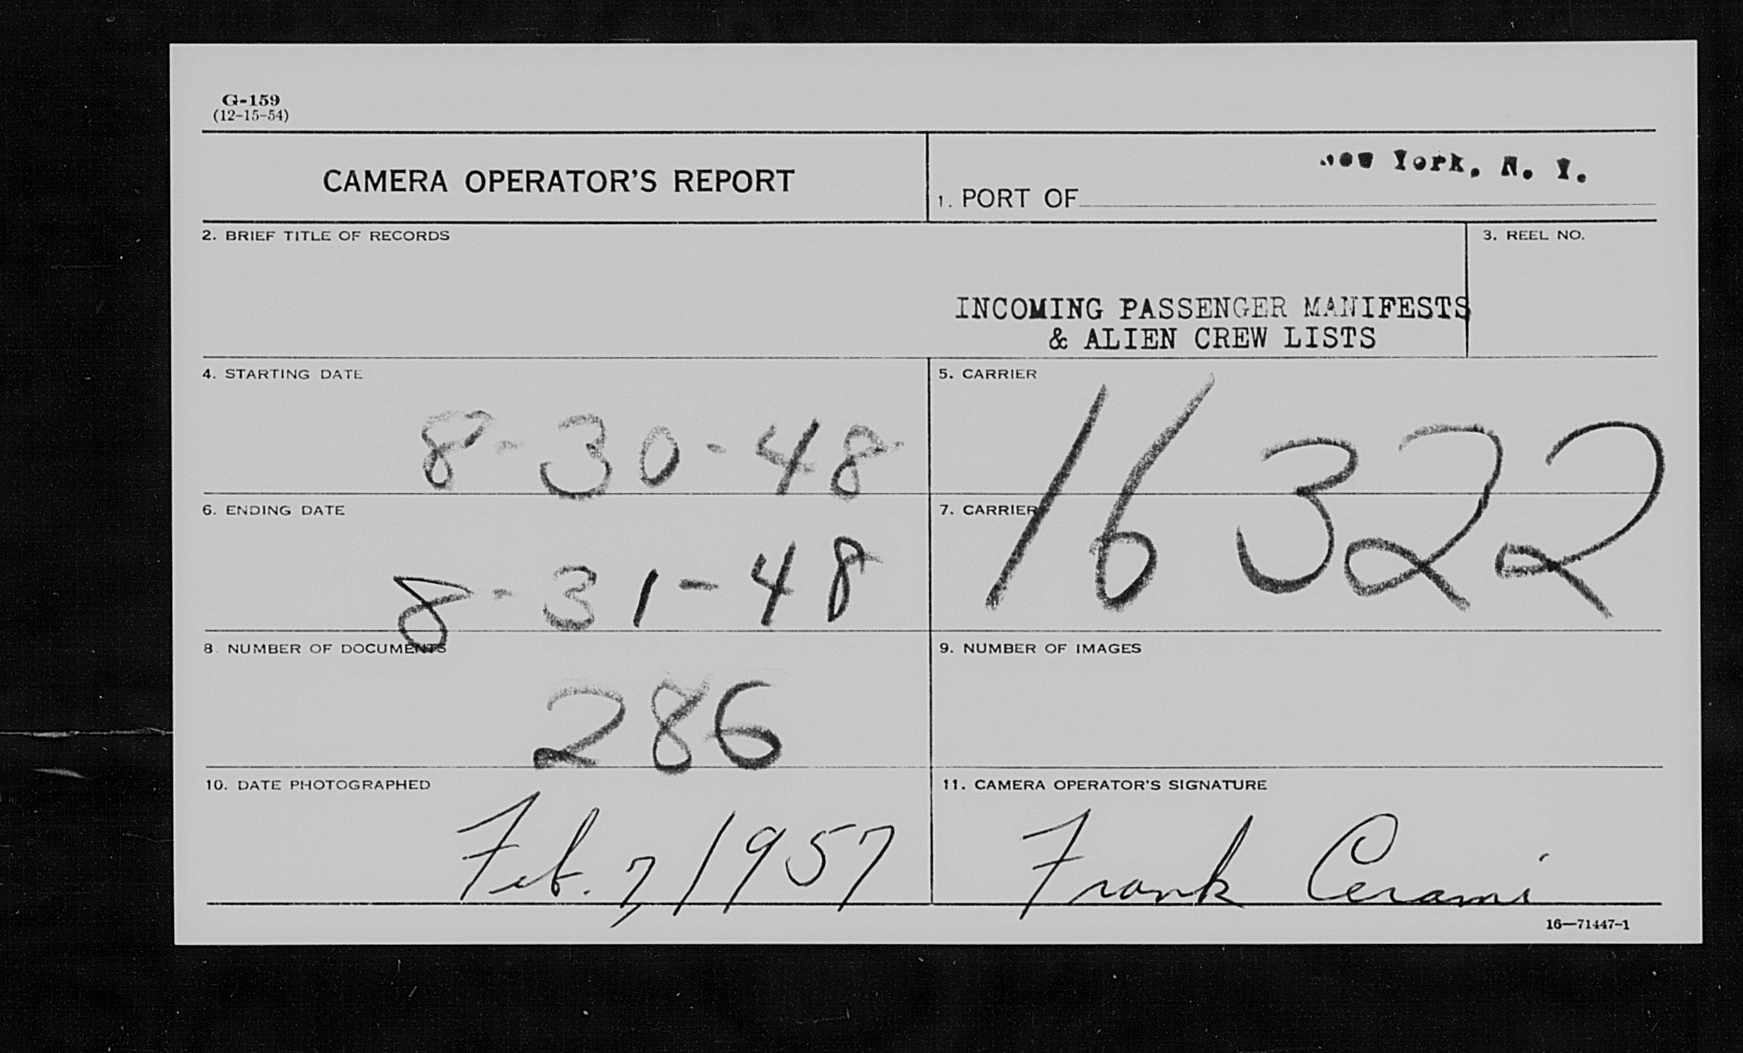 G-159
(12-15-54)
CAMERA OPERATOR'S REPORT
1. PORT OF New York, N. Y.
2. BRIEF TITLE OF RECORDS
INCOMING PASSENGER MANIFESTS
& ALIEN CREW LISTS
3. REEL NO.
4. STARTING DATE
8-30-48
5. CARRIER
16322
6. ENDING DATE
8-31-48
7. CARRIER
8. NUMBER OF DOCUMENTS
286
9. NUMBER OF IMAGES
10. DATE PHOTOGRAPHED
Feb. 7, 1957
11. CAMERA OPERATOR'S SIGNATURE
Frank Cerami
16—71447-1